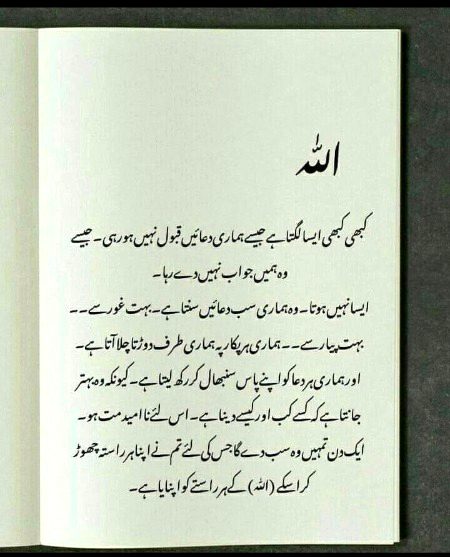 اللہ
کبھی کبھی ایسا لگتا ہے جیسے ہماری دعائیں قبول نہیں ہو رہی ۔ جیسے
وہ ہمیں جواب نہیں دے رہا ۔
ایسا نہیں ہوتا ۔ وہ ہماری سب دعائیں سنتا ہے ۔ بہت غور سے ۔ ۔
بہت پیار سے ۔ ۔ ہماری ہر پکار پہ ہماری طرف دوڑتا چلا آتا ہے ۔
اور ہماری ہر دعا کو اپنے پاس سنبھال کر رکھ لیتا ہے ۔ کیونکہ وہ بہتر
جانتا ہے کہ کسے کب اور کیسے دینا ہے ۔ اس لئے نا امید مت ہو ۔
ایک دن تمہیں وہ سب دے گا جس کی لئے تم نے اپنا ہر راستہ چھوڑ
کر اسکے (اللہ) کے ہر راستے کو اپنایا ہے ۔